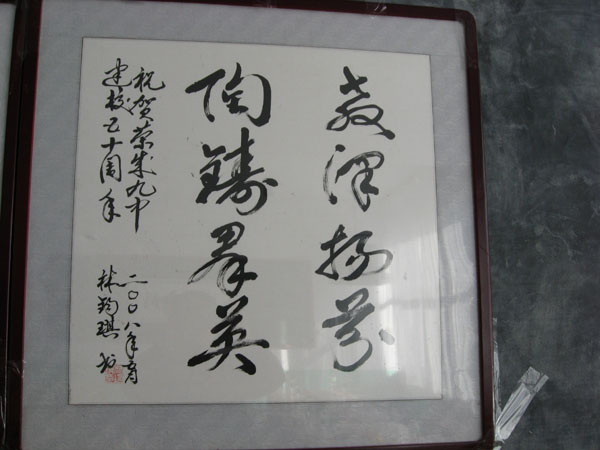 教泽扬芬
陶铸群英
祝贺荣成九中
建校五十周年
二〇〇八年
林鞠琪书